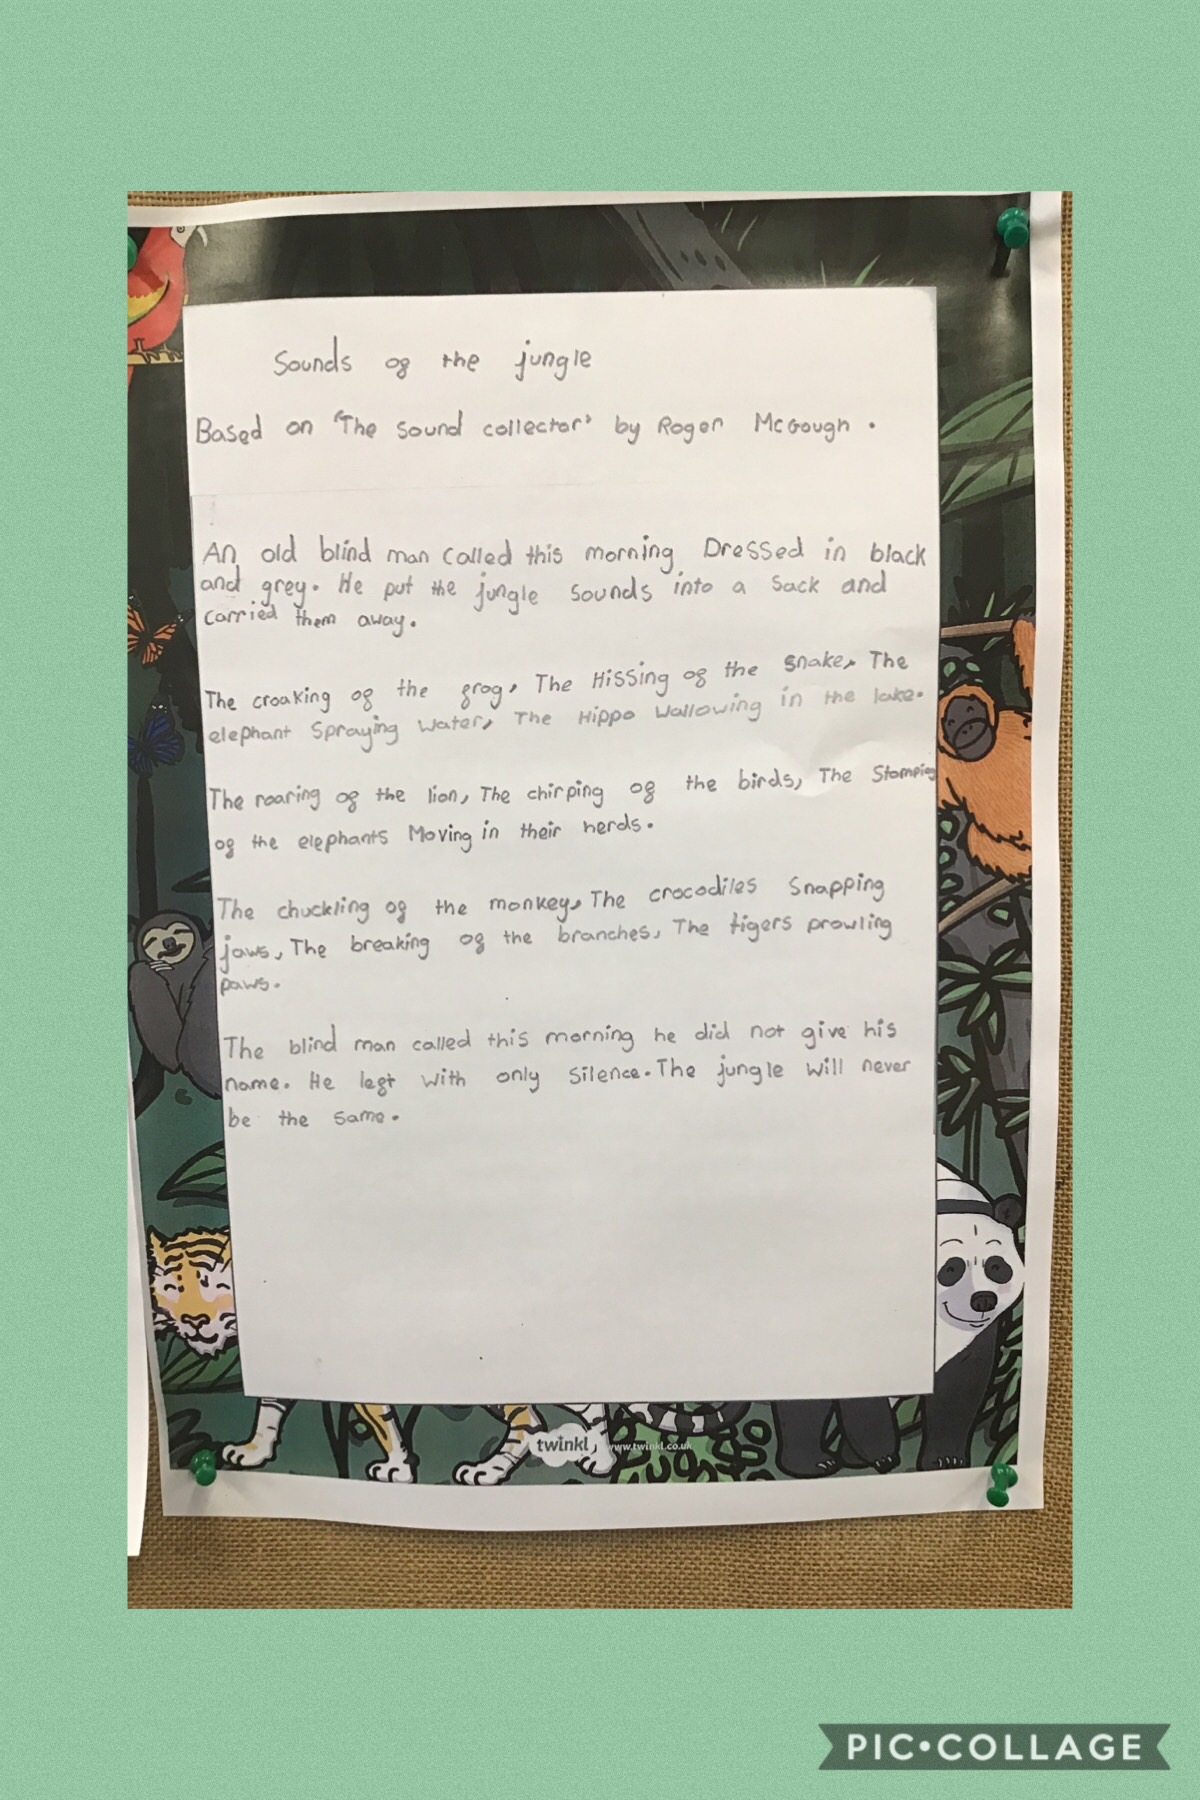 Sounds of the jungle
Based on 'The sound collector' by Roger McGough.
An old blind man called this morning Dressed in black
and grey. He put the jungle sounds into a sack and
carried them away.
The croaking of the frog, The Hissing of the snake, The
elephant Spraying water, The Hippo Wallowing in the lake.
The roaring of the lion, The chirping of the birds, The Stomping
of the elephants Moving in their herds.
The chuckling of the monkey, The crocodiles Snapping
jaws, The breaking of the branches, The tigers prowling
paws.
The blind man called this morning he did not give his
name. He left with only silence. The jungle will never
be the same.
twinkl www.twinkl.co.uk
PIC•COLLAGE